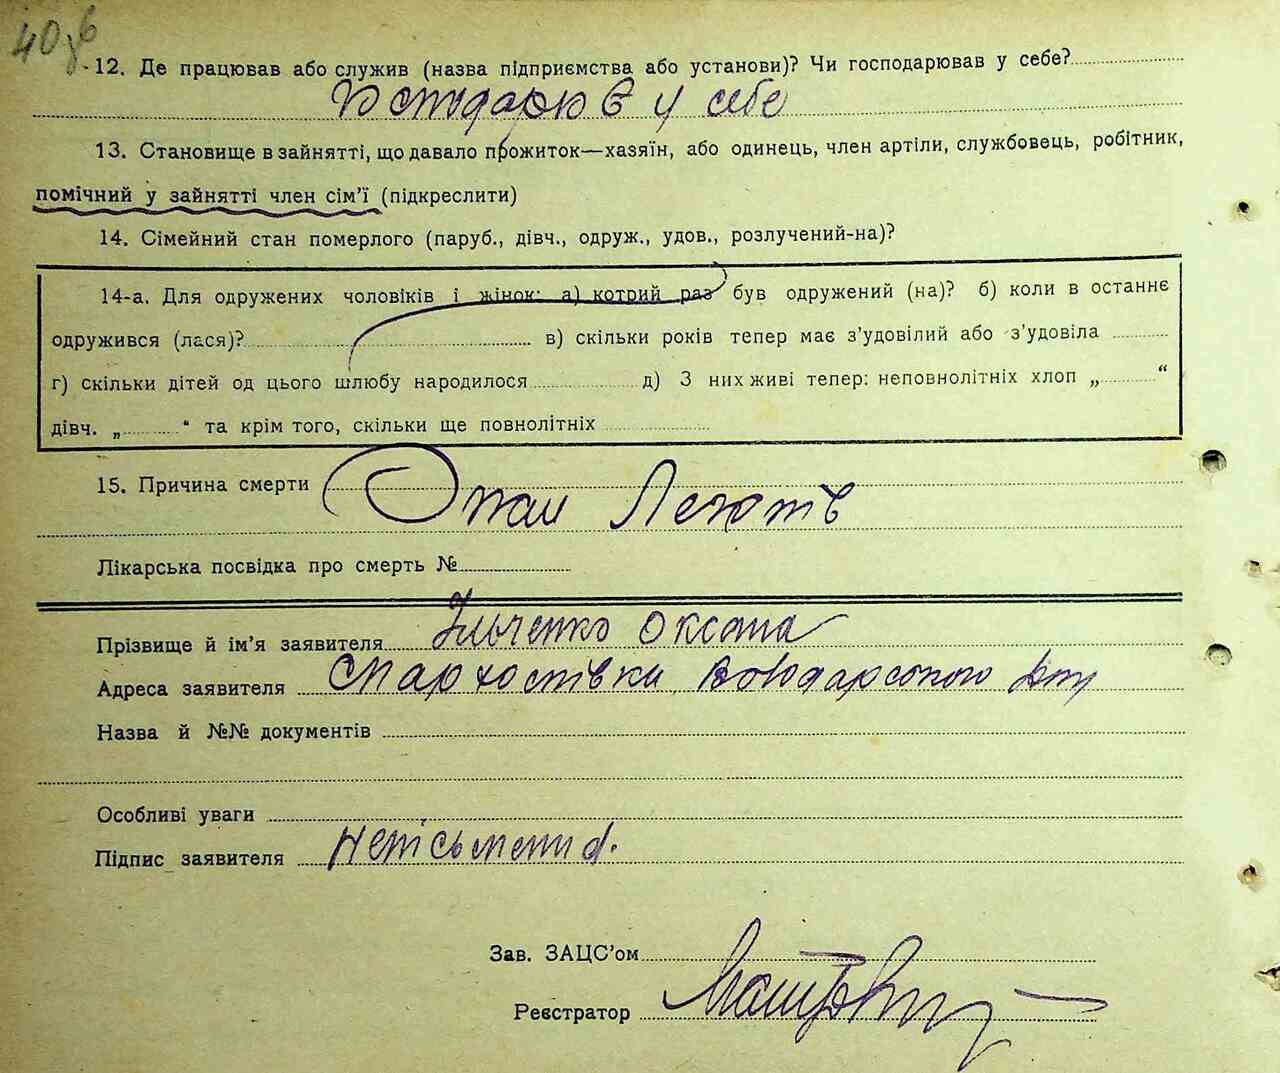 40 зб
12. Де працював або служив (назва підприємства або установи)? Чи господарював у себе?
Господарює у себе
13. Становище в зайнятті, що давало прожиток—хазяїн, або одинець, член артіли, службовець, робітник,
помічний у зайнятті член сім'ї (підкреслити)
14. Сімейний стан померлого (паруб., дівч., одруж., удов., розлучений-на)?
14-а. Для одружених чоловіків і жінок: а) котрий раз був одружений (на)? б) коли в останнє
одружився (лася)? в) скільки років тепер має з'удовілий або з'удовіла
г) скільки дітей од цього шлюбу народилося д) З них живі тепер: неповнолітніх хлоп „ “
дівч. „ “ та крім того, скільки ще повнолітніх
15. Причина смерти
Лікарська посвідка про смерть №
Прізвище й ім'я заявителя Ільченко Оксана
Адреса заявителя Мархостівки Володарського
Назва й №№ документів
Особливі уваги
Підпис заявителя
Зав. ЗАЦС'ом
Реєстратор